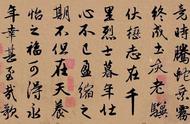 竟時騰蛇乘霧
終成土灰老驥
伏櫪志在千
里烈士暮年壯
心不已盈縮之
期不但在天養
怡之福可得永
年幸甚至哉歌